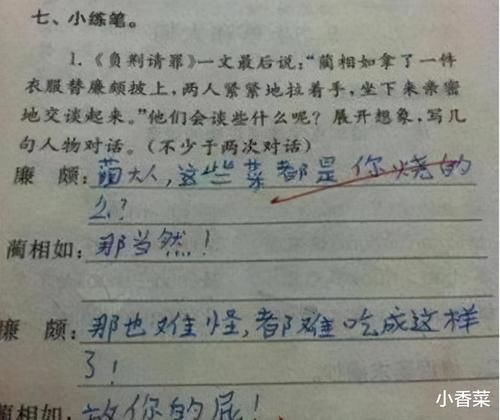 七、小练笔。
1.《负荆请罪》一文最后说：“蔺相如拿了一件
衣服替廉颇披上，两人紧紧地拉着手，坐下来亲密
地交谈起来。”他们会谈些什么呢？展开想象，写几
句人物对话。（不少于两次对话）
廉 颇：蔺大人，这些菜都是你烧的
么？
蔺相如：那当然！
廉 颇：那也难怪，都难吃成这样
了！
蔺相如：放你的屁！
小香菜